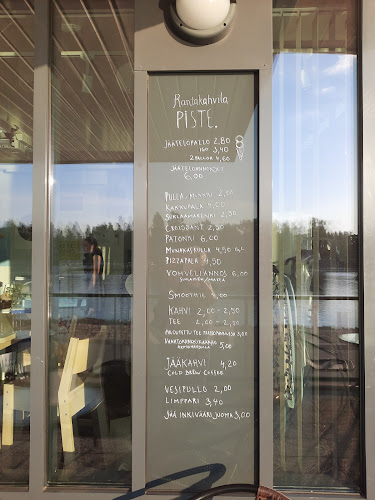 Rantakahvila
PISTE.
JÄÄTELÖPALLO 2,80
ISO 3,40
2 PALLOA 4,60
6,00
PULLA, MUNKKI 2,50
KAKKUPALA 4,00
SUKLAA
CROISSANT 2,50
PATONKI 6,00
MUNKKIPULLA 4,50
PIZZAPALA 3,50
VOHVELIANNOS 6,00
SMOOTHIE 4,00
KAHVI 2,00 - 2,50
TEE 2,00 - 2,50
3,00
5,00
JÄÄKAHVI 4,20
COLD BREW COFFEE
VESIPULLO 2,00
LIMPPARI 3,40
JÄÄ INKIVÄÄRIJUOMA 3,00